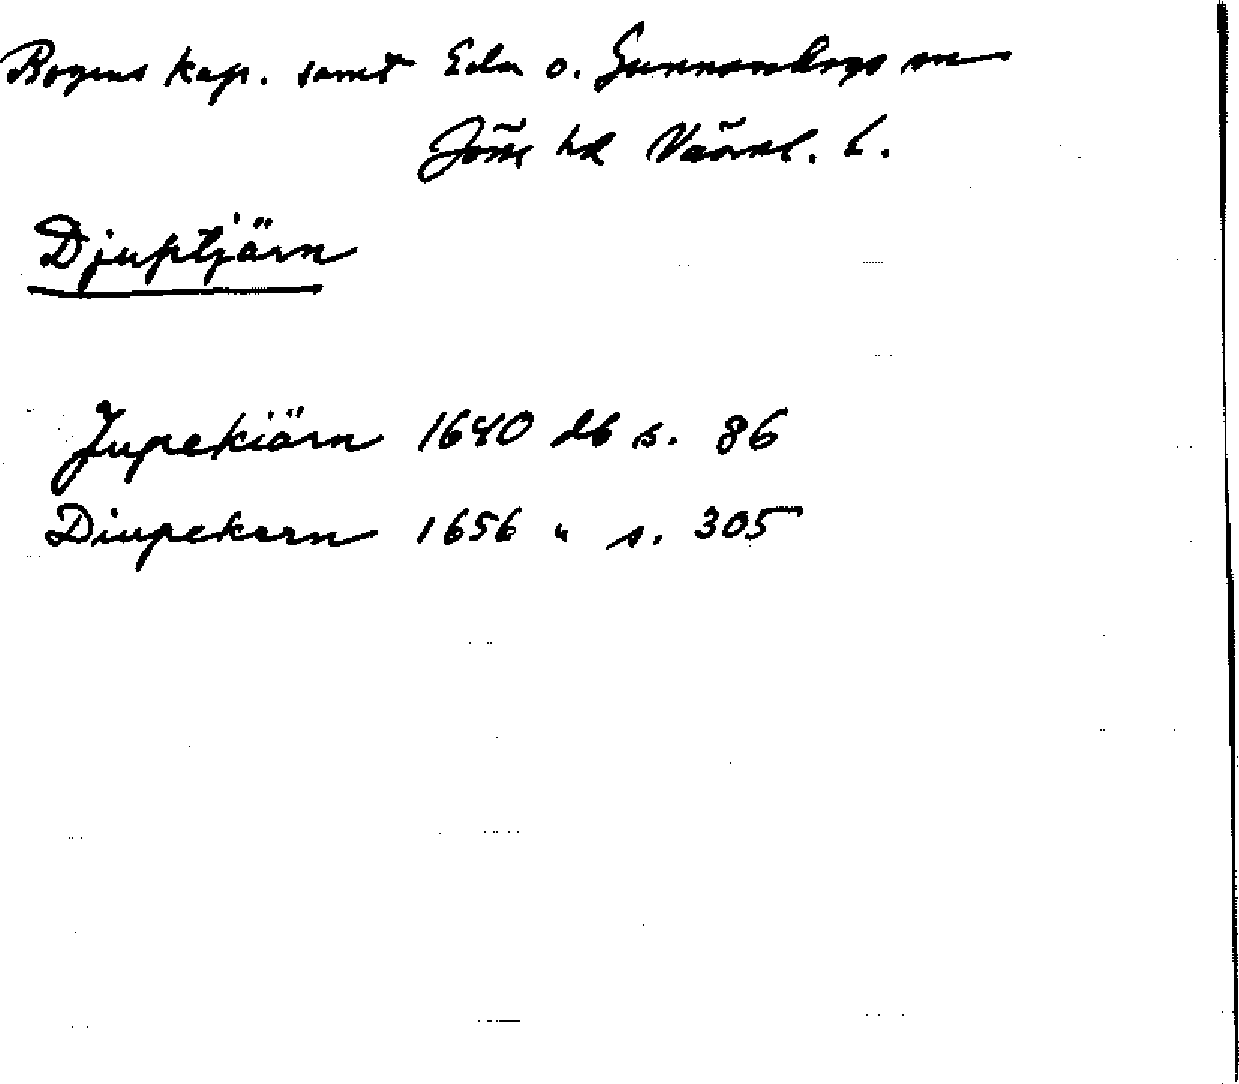 Bogens kap. samt Eda o. Gunnarskogs sn
Jösse hd Värml. l.
Djuptjärn
Jupekiärn 1640 db s. 86
Diupekern 1656 " s. 305